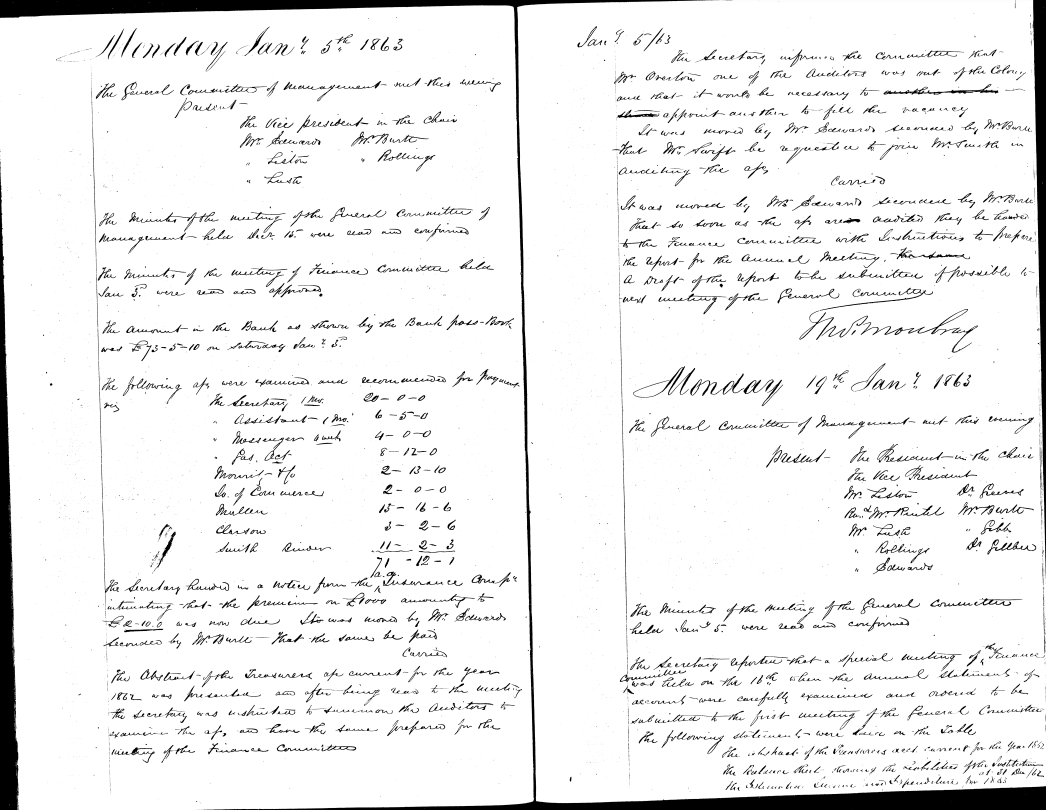 Monday Jany 5th 1863
The General Committee of Management met this evening
Present
The Vice President in the Chair
Mr. Edwards Mr. Burtt
" Liston " Rollings
" Lush
The Minutes of the meeting of the General Committee of
Management held Decr. 15 were read and confirmed
The Minutes of the meeting of Finance Committee held
Jan 3. were read and approved.
The Amount in the Bank as shown by the Bank pass-Book
was £73-5-10 on Saturday Jany 3.
The following a/cs were examined and recommended for Payment
viz
The Secretary 1 Mo. 20-0-0
" Assistant 1 Mo. 6-5-0
" Messenger 4 week 4-0-0
" Gas, Oct 8-12-0
2-13-10
of Commerce 2-0-0
Mullen 15-16-6
Clarson 3-2-6
Smith Binder 11-2-3
71-12-1
The Secretary handed in a notice from the Insurance Compy
intimating that the premium on £1000 amounting to
£2-10.0 was now due It was moved by Mr. Edwards
seconded by Mr Burtt That the same be paid
Carried
The Abstract of the Treasurers a/c current for the year
1862 was presented and after being read to the meeting
the Secretary was instructed to summon the Auditors to
examine the a/cs and have the same prepared for the
meeting of the Finance Committee
Jany. 5/63
The Secretary informed the Committee that
Mr Overton one of the Auditors was out of the Colony
and that it would be necessary to another
appoint another to fill the vacancy
It was moved by Mr Edwards seconded by Mr Burtt
that Mr. Swift be requested to join Mr. Smith in
auditing the a/cs
Carried
It was moved by Mr Edwards seconded by Mr Burtt
That so soon as the a/cs are audited they be handed
to the Finance Committee with Instructions to prepare
the report for the Annual Meeting. The same
A draft of the report to be submitted if possible to
next meeting of the General Committee
Monday 19th Jany. 1863
The General Committee of Management met this evening
Present The President in the Chair
The Vice President
Mr. Liston Dr. Greeves
Revd. Mr. Rintel Mr. Burtt
Mr. Lush " Gibb
" Rollings Dr. Gilbee
" Edwards
The Minutes of the meeting of the General Committee
held Jany 5. were read and confirmed
The Secretary reported that a special meeting of the Finance
Committee was held on the when the annual Statements of
accounts were carefully examined and ordered to be
submitted to the first meeting of the General Committee
The following statements were laid on the Table
The Abstract of the Treasurers acct current for the Year 1862
The Balance Sheet shewing the liabilities of the Institution
at 31 Dec/62
The Estimated Income and Expenditure for 1863